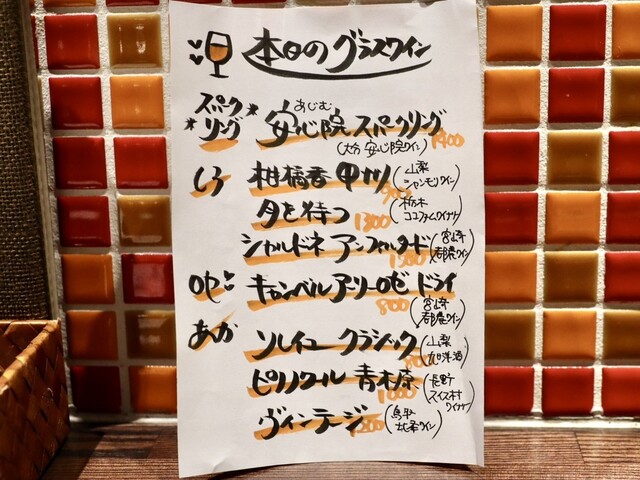 本日のグラスワイン
スパークリング
あじむ
安心院スパークリング 1400
(大分 安心院ワイン)
しろ
柑橘香 甲州
(山梨 シャンモリワイン)
月を待つ 1300
(栃木 ココファームワイナリー)
シャルドネ アンフィルタード
(宮崎 都農ワイン)
ロゼ
キャンベルアーリーロゼ ドライ 800
(宮崎 都農ワイン)
あか
ソレイユ クラシック
(山梨
ピノノワール 青木原 1000
(長野 スイス村ワイナリー)
ヴィンテージ